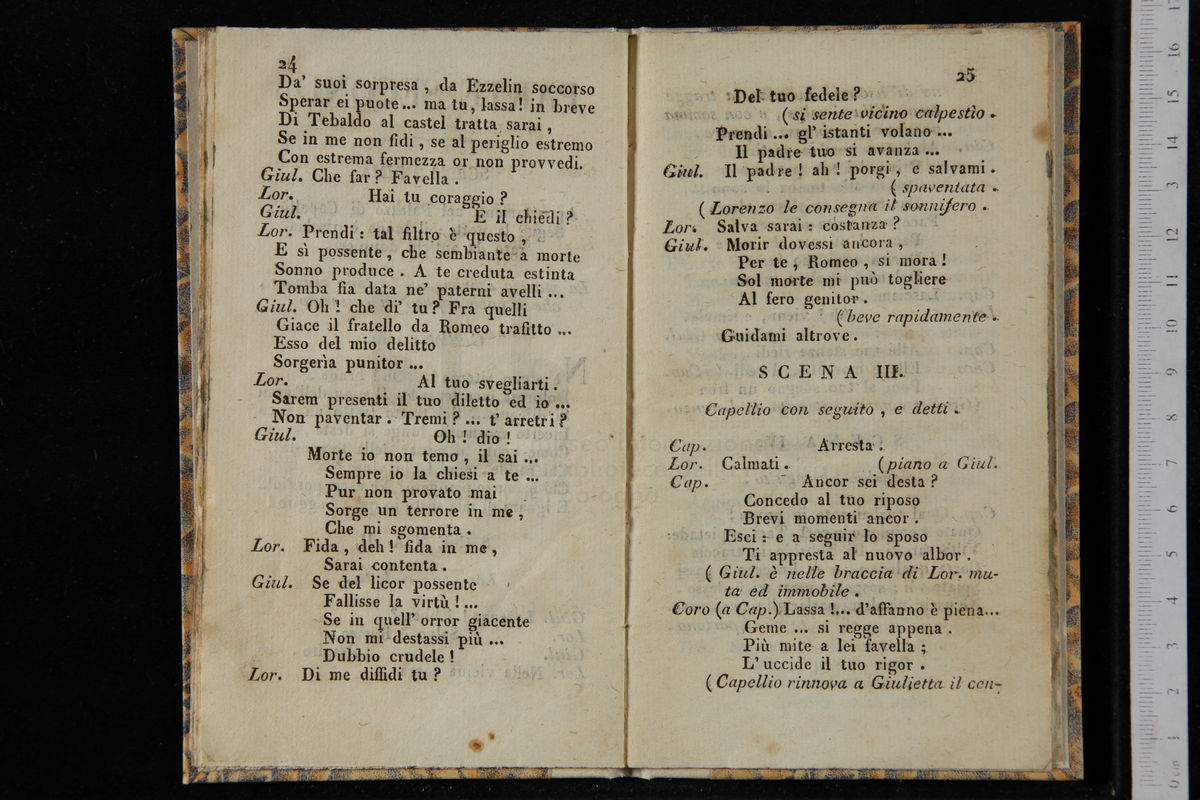 24
Da' suoi sorpresa, da Ezzelin soccorso
Sperar ei puote... ma tu, lassa! in breve
Di Tebaldo al castel tratta sarai,
Se in me non fidi, se al periglio estremo
Con estrema fermezza or non provvedi.
Giul. Che far? Favella.
Lor. Hai tu coraggio?
Giul. E il chiedi?
Lor. Prendi: tal filtro è questo,
E sì possente, che sembiante a morte
Sonno produce. A te creduta estinta
Tomba fia data ne' paterni avelli...
Giul. Oh! che di' tu? Fra quelli
Giace il fratello da Romeo trafitto...
Esso del mio delitto
Sorgerìa punitor...
Lor. Al tuo svegliarti.
Sarem presenti il tuo diletto ed io...
Non paventar. Tremi?... t'arretri?
Giul. Oh! dio!
Morte io non temo, il sai...
Sempre io la chiesi a te...
Pur non provato mai
Sorge un terrore in me,
Che mi sgomenta.
Lor. Fida, deh! fida in me,
Sarai contenta.
Giul. Se del licor possente
Fallisse la virtù!...
Se in quell' orror giacente
Non mi destassi più...
Dubbio crudele!
Lor. Di me diffidi tu?
25
Del tuo fedele?
(si sente vicino calpestìo.
Prendi... gl' istanti volano...
Il padre tuo si avanza...
Giul. Il padre! ah! porgi, e salvami.
(spaventata.
(Lorenzo le consegna il sonnifero.
Lor. Salva sarai: costanza?
Giul. Morir dovessi ancora,
Per te, Romeo, si mora!
Sol morte mi può togliere
Al fero genitor.
(beve rapidamente.
Guidami altrove.
SCENA III.
Capellio con seguito, e detti.
Cap. Arresta.
Lor. Calmati. (piano a Giul.
Cap. Ancor sei desta?
Concedo al tuo riposo
Brevi momenti ancor.
Esci: e a seguir lo sposo
Ti appresta al nuovo albor.
(Giul. è nelle braccia di Lor. mu-
ta ed immobile.
Coro (a Cap.) Lassa!... d'affanno è piena...
Geme... si regge appena.
Più mite a lei favella;
L'uccide il tuo rigor.
(Capellio rinnova a Giulietta il cen-